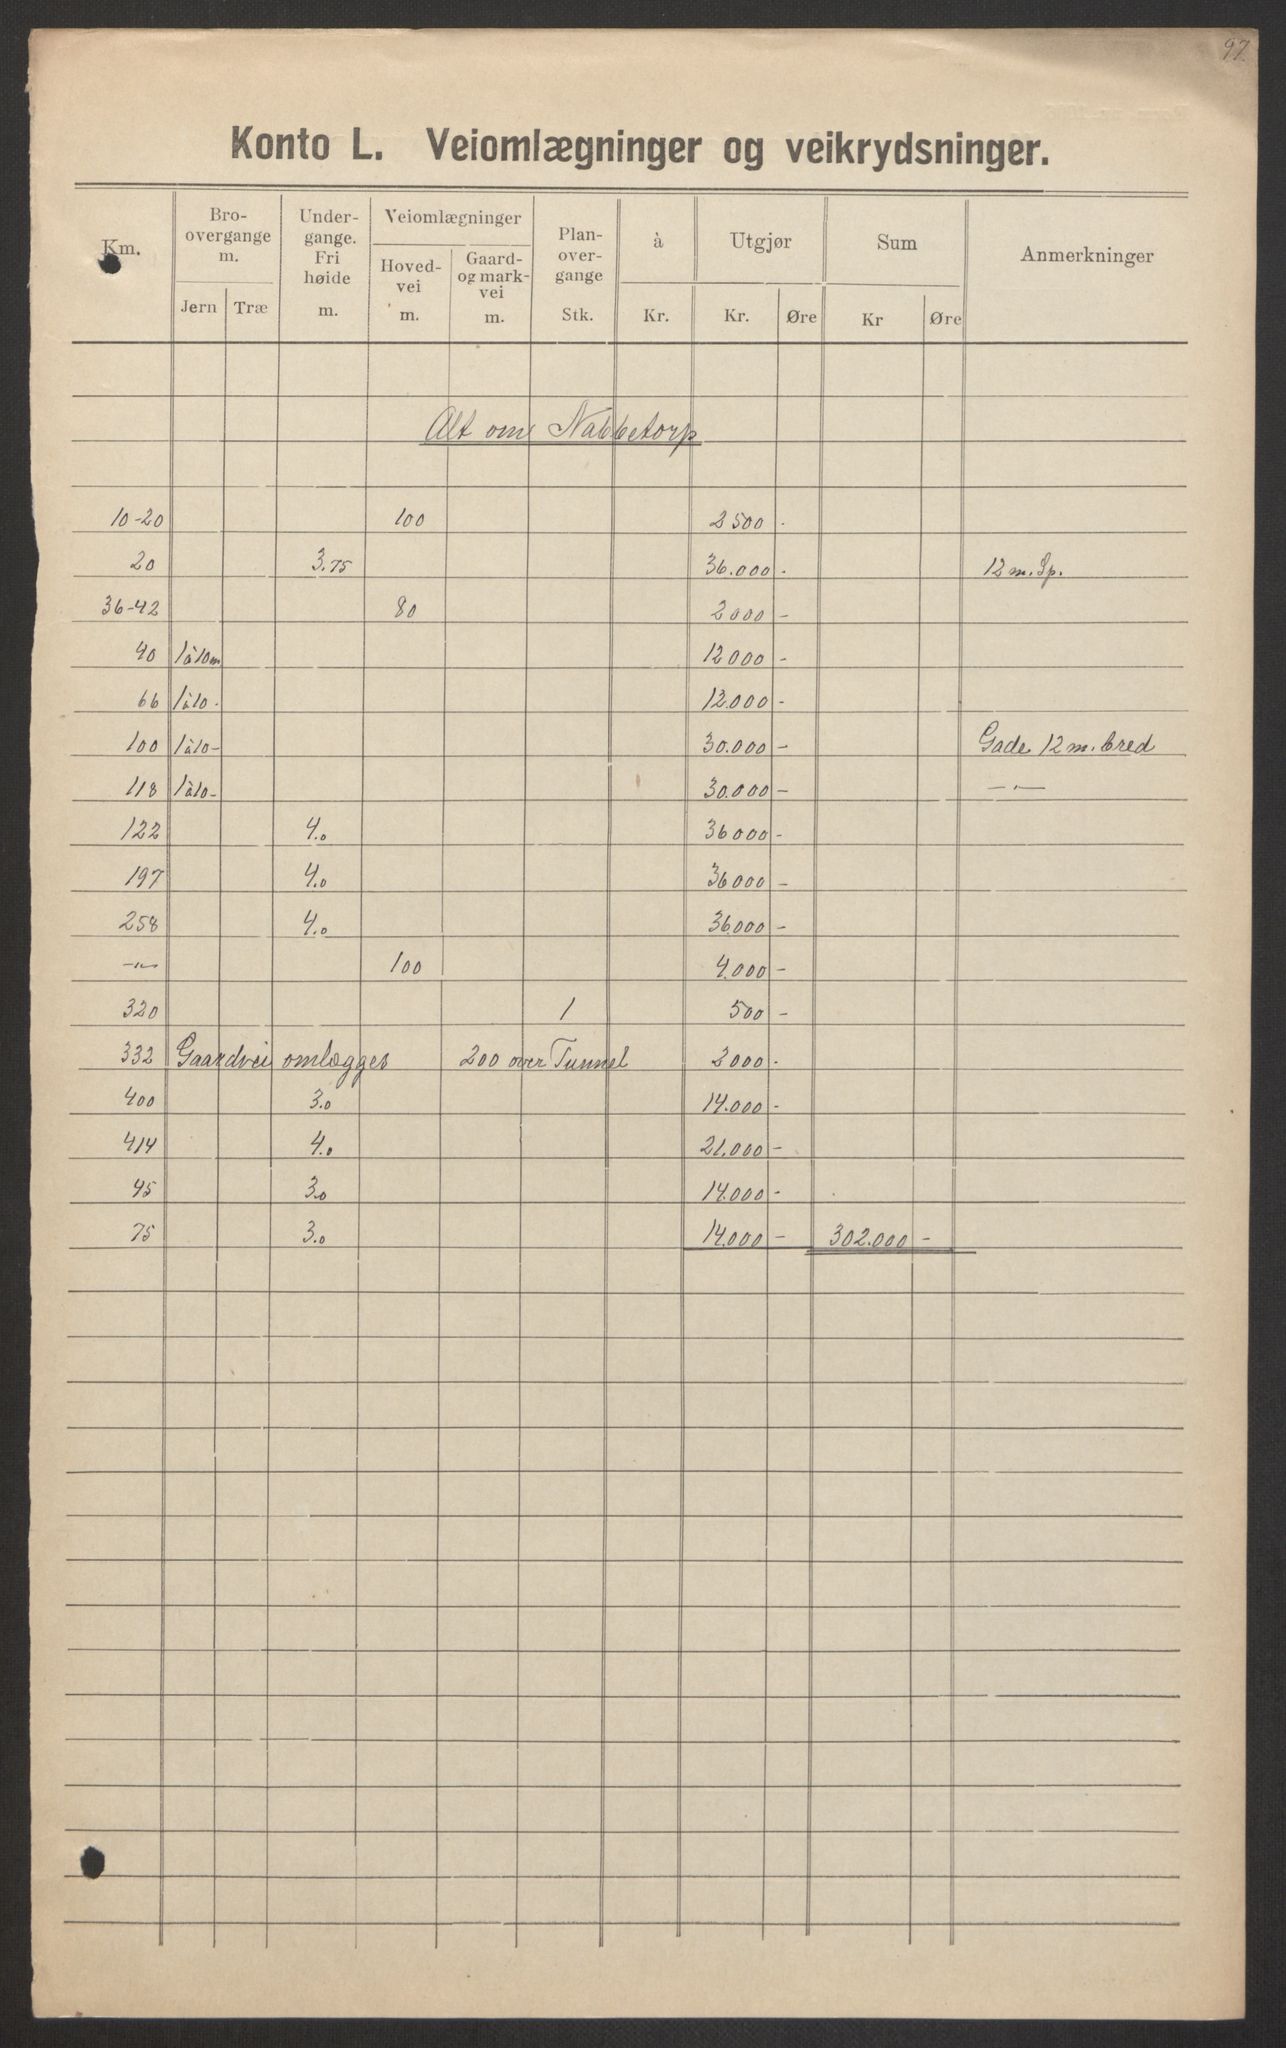 97
Konto L. Veiomlægninger og veikrydsninger.
Km. | Bro-overgange m. Jern | Træ | Under-gange. Fri høide m. | Veiomlægninger Hoved-vei m. | Gaard-og mark-vei m. | Plan-over-gange Stk. | à Kr. | Utgjør Kr. | Øre | Sum Kr | Øre | Anmerkninger
Alt om Nabbetorp
10-20 100 2500 -
20 3.75 36.000 - 12 m. Sp.
36-42 80 2000 -
40 1 à 10 m 12000 -
66 1 à 10 - 12.000 -
100 1 à 10 - 30.000 - Gade 12 m. bred
118 1 à 10 - 30.000 - —"—
122 4.0 36000 -
197 4.0 36000 -
258 4.0 36000 -
—"— 100 4.000 -
320 1 500 -
332 Gaardvei omlægges 200 over Tunnel 2000 -
400 3.0 14.000 -
414 4.0 21.000 -
45 3.0 14.000 -
75 3.0 14.000 - 302.000 -